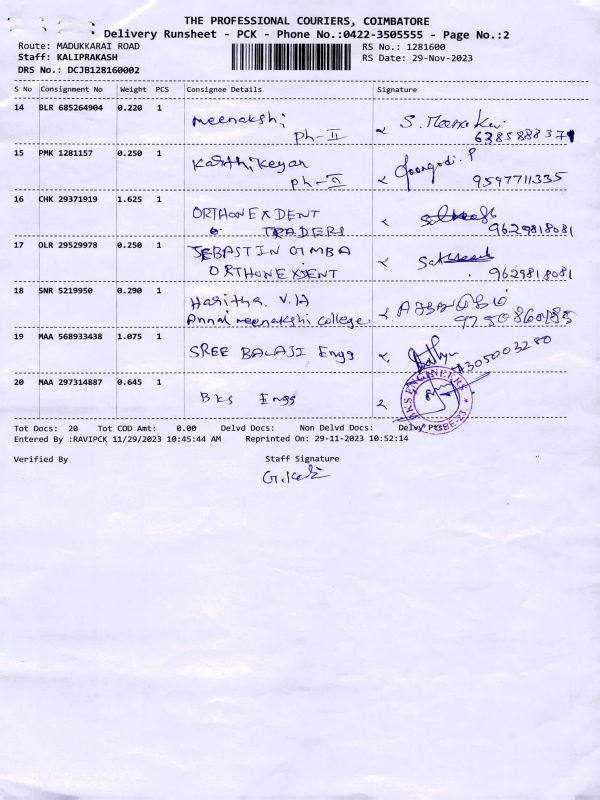 THE PROFESSIONAL COURIERS, COIMBATORE
Delivery Runsheet - PCK - Phone No.:0422-3505555 - Page No.:2
Route: MADUKKARAI ROAD RS No.: 1281600
Staff: KALIPRAKASH RS Date: 29-Nov-2023
DRS No.: DCJB128160002
S No Consignment No Weight PCS Consignee Details Signature
14 BLR 685264904 0.220 1 Meenakshi S. Meena
Ph-II
15 PMK 1281157 0.250 1 Karthikeyan P
Ph-II 9597711335
16 CHK 29371919 1.625 1 ORTHONEXDENT
TRADERS 9629818081
17 OLR 29529978 0.250 1 SEBASTIN
ORTHONEXDENT 9629818081
18 SNR 5219950 0.290 1 Haritha. V.H
Annai meenakshi college
19 MAA 568933438 1.075 1 SREE BALAJI Engg
20 MAA 297314887 0.645 1 BKS Engg BKS ENGINEERS
Tot Docs: 20 Tot COD Amt: 0.00 Delvd Docs: Non Delvd Docs: Delvy Pt
Entered By :RAVIPCK 11/29/2023 10:45:44 AM Reprinted On: 29-11-2023 10:52:14
Verified By Staff Signature